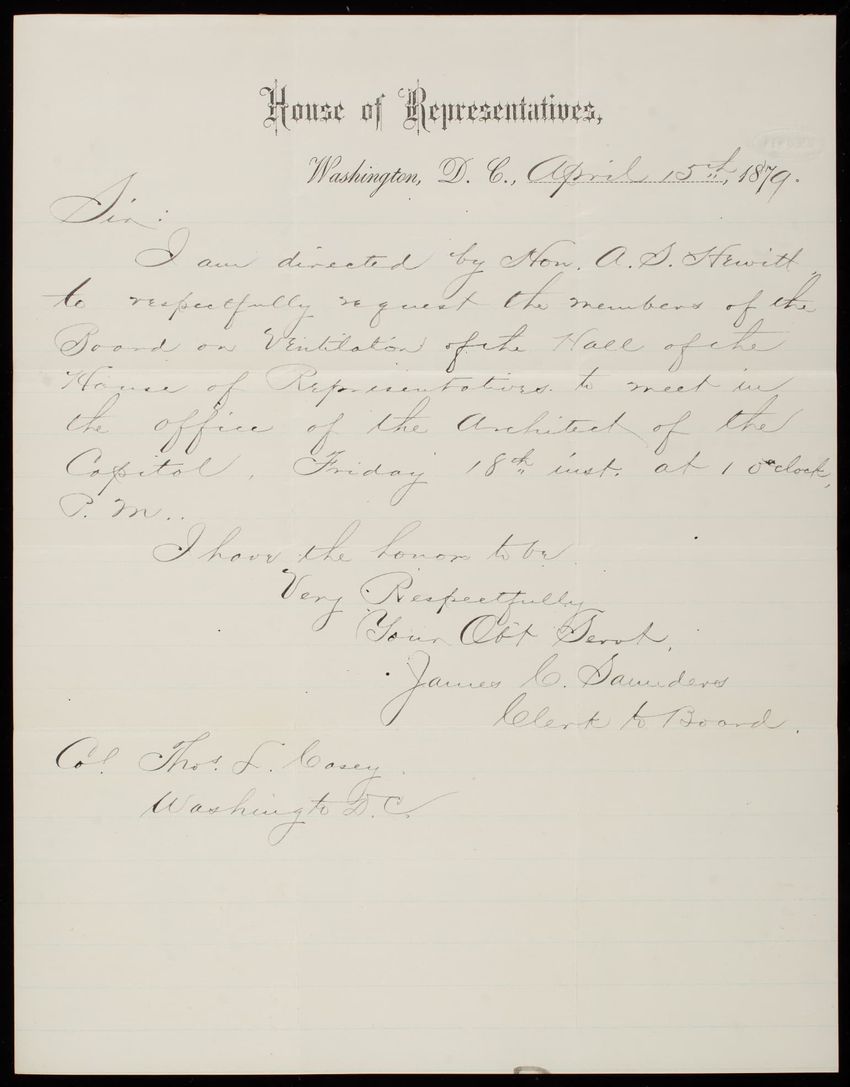 House of Representatives,
Washington, D. C., April 15th, 1879.
Sir:
I am directed by Hon. A. S. Hewitt,
to respectfully request the members of the
Board on Ventilation of the Hall of the
House of Representatives to meet in
the office of the Architect of the
Capitol, Friday 18th inst. at 1 o'clock,
P. M..
I have the honor to be
Very Respectfully
Your Obt Servt,
James C. Saunders
Clerk to Board.
Col. Thos. L. Casey
Washingto D. C.